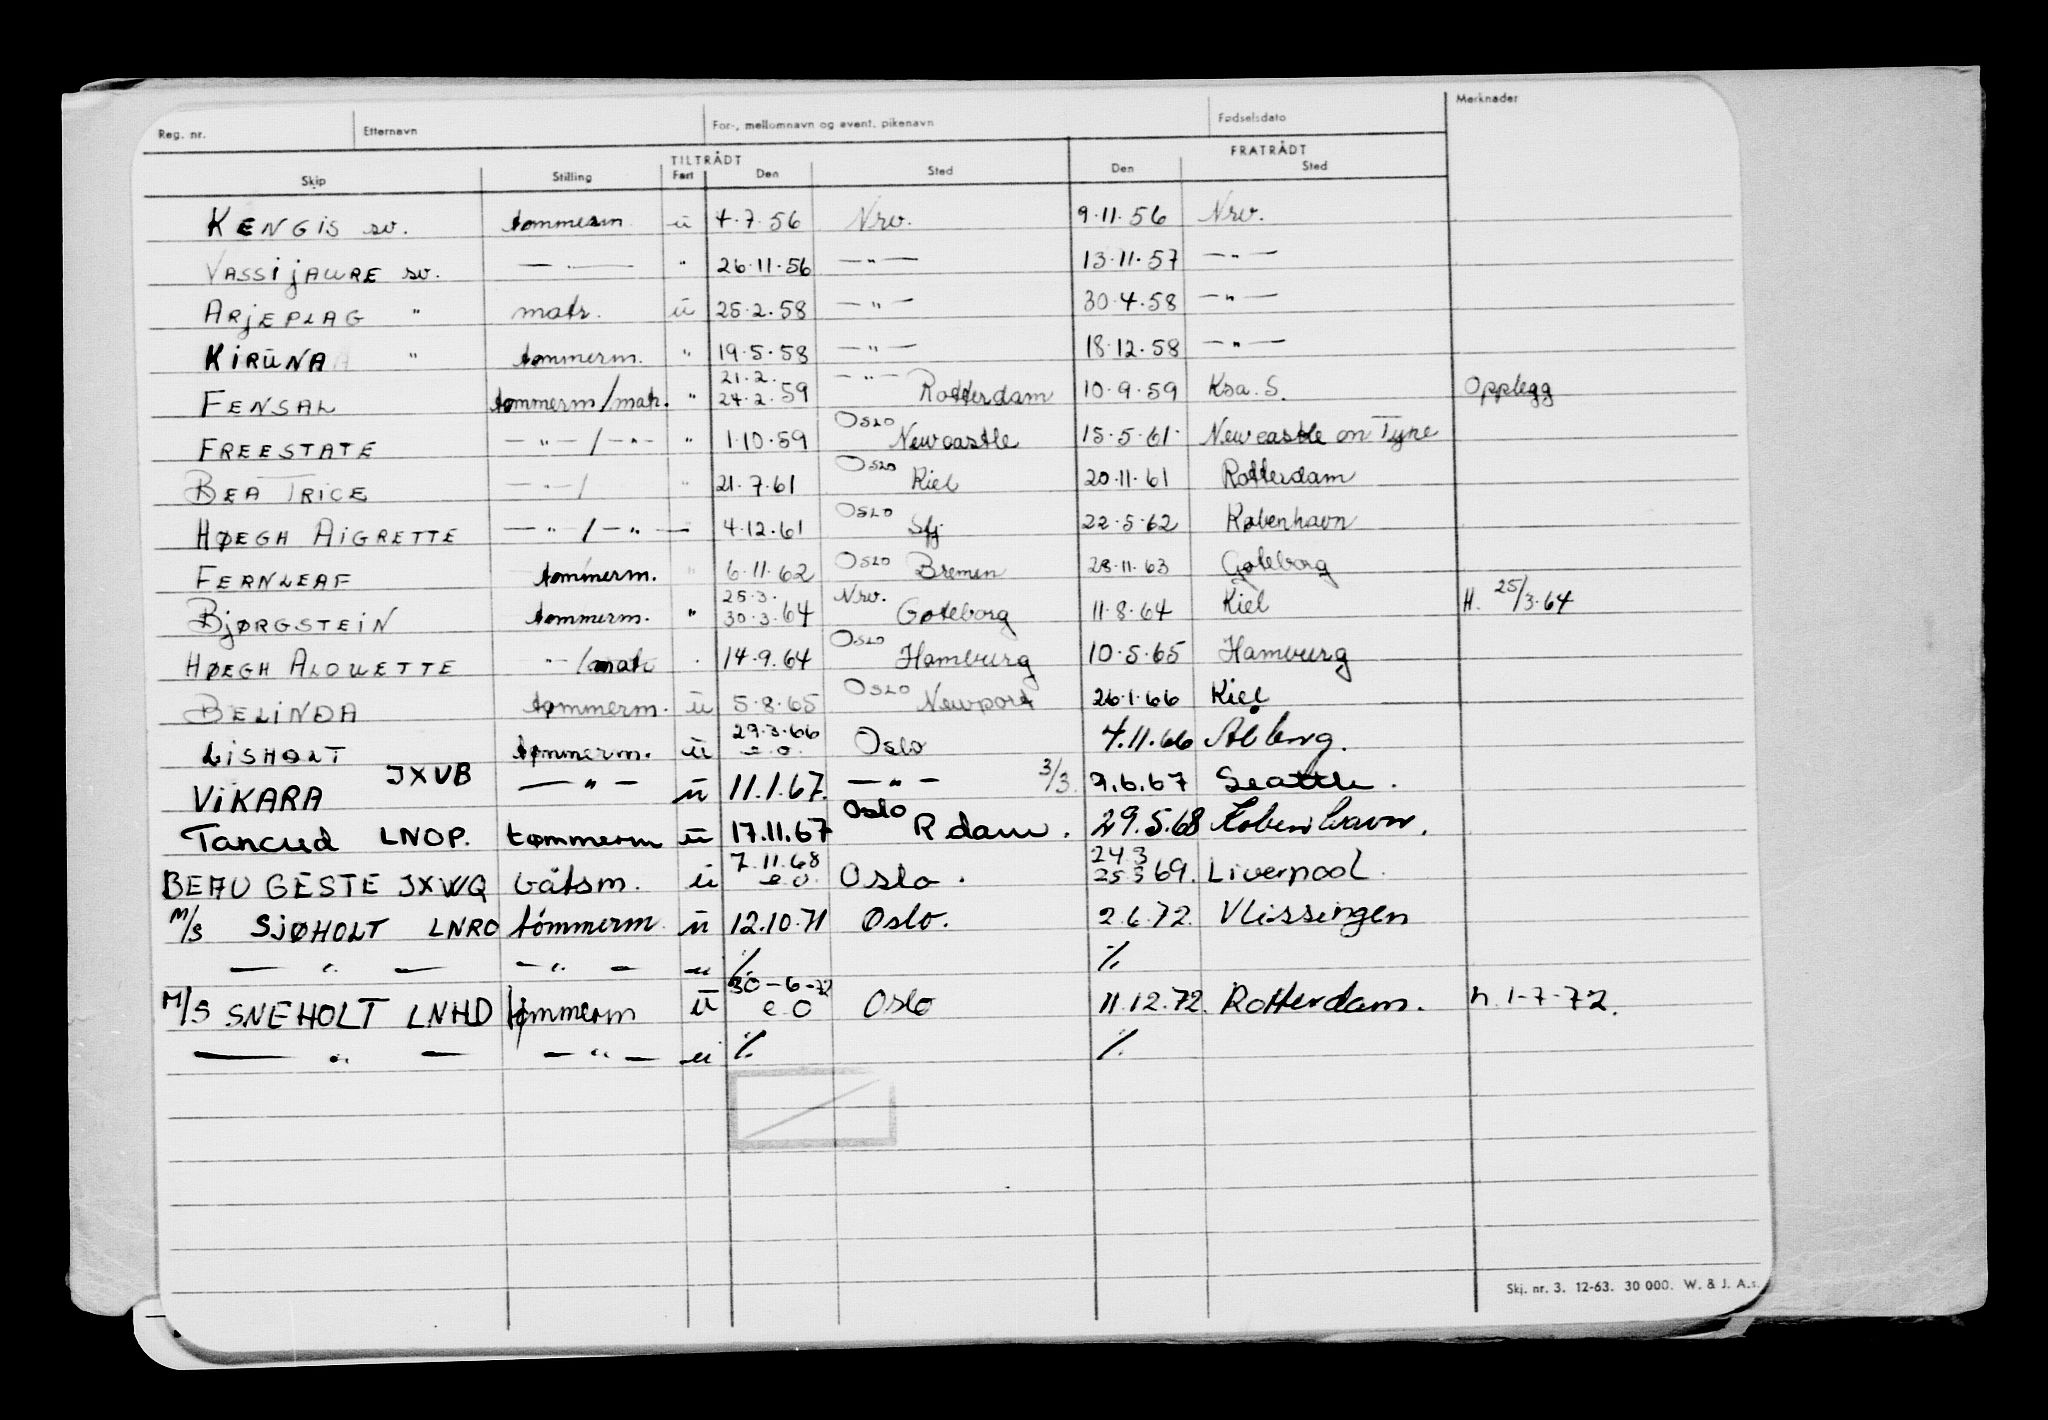 Reg. nr. Etternavn For-, mellomnavn og event. pikenavn Fødselsdato Merknader
TILTRÅDT FRATRÅDT
Skip Stilling Fart Den Sted Den Sted
KENGIS sv. tømmerm. u 4.7.56 Nrv. 9.11.56 Nrv.
VASSIJAURE sv. — — " 26.11.56 — " — 13.11.57 — " —
ARJEPLAG " matr. u 25.2.58 — " — 30.4.58 — " —
KIRUNA " tømmerm. " 19.5.58 — " — 18.12.58 — " —
21.2. — " —
FENSAL tømmerm/matr. " 24.2.59 Rotterdam 10.9.59 Ksa. S. Opplegg
FREESTATE — " — / — " — " 1.10.59 Oslo Newcastle 15.5.61 Newcastle on Tyne
BEATRICE — " — / " 21.7.61 Oslo Kiel 20.11.61 Rotterdam
HØEGH AIGRETTE — " — / — " — 4.12.61 Oslo Sfj. 22.5.62 København
FERNLEAF tømmerm. " 6.11.62 Oslo Bremen 28.11.63 Gøteborg
25.3. Nrv.
BJØRGSTEIN tømmerm. " 30.3.64 Gøteborg 11.8.64 Kiel H. 25/3.64
HØEGH ALOUETTE " — /matr 14.9.64 Oslo Hamburg 10.5.65 Hamburg
BELINDA tømmerm. u 5.8.65 Oslo Newport 26.1.66 Kiel
29.3.66
LISHOLT tømmerm. u e.o. Oslo 4.11.66 Ålborg.
VIKARA JXVB — " — u 11.1.67. — " — 3/3. 7.6.67 Seattle.
Tancred LNOP. tømmerm u 17.11.67 Oslo Rdam. 29.5.68 København.
7.11.68 24 3
BEAU GESTE JXWQ båtsm. u e.o. Oslo. 25 3 69. Liverpool.
M/S SJØHOLT LNRO tømmerm. u 12.10.71 Oslo. 2.6.72. Vlissingen
— " — — " — u % %
30-6-72
M/S SNEHOLT LNHD tømmerm u e.o Oslo 11.12.72. Rotterdam. h. 1-7-72.
— " — — " — u % %
Skj. nr. 3. 12-63. 30 000. W. & J. A.s.